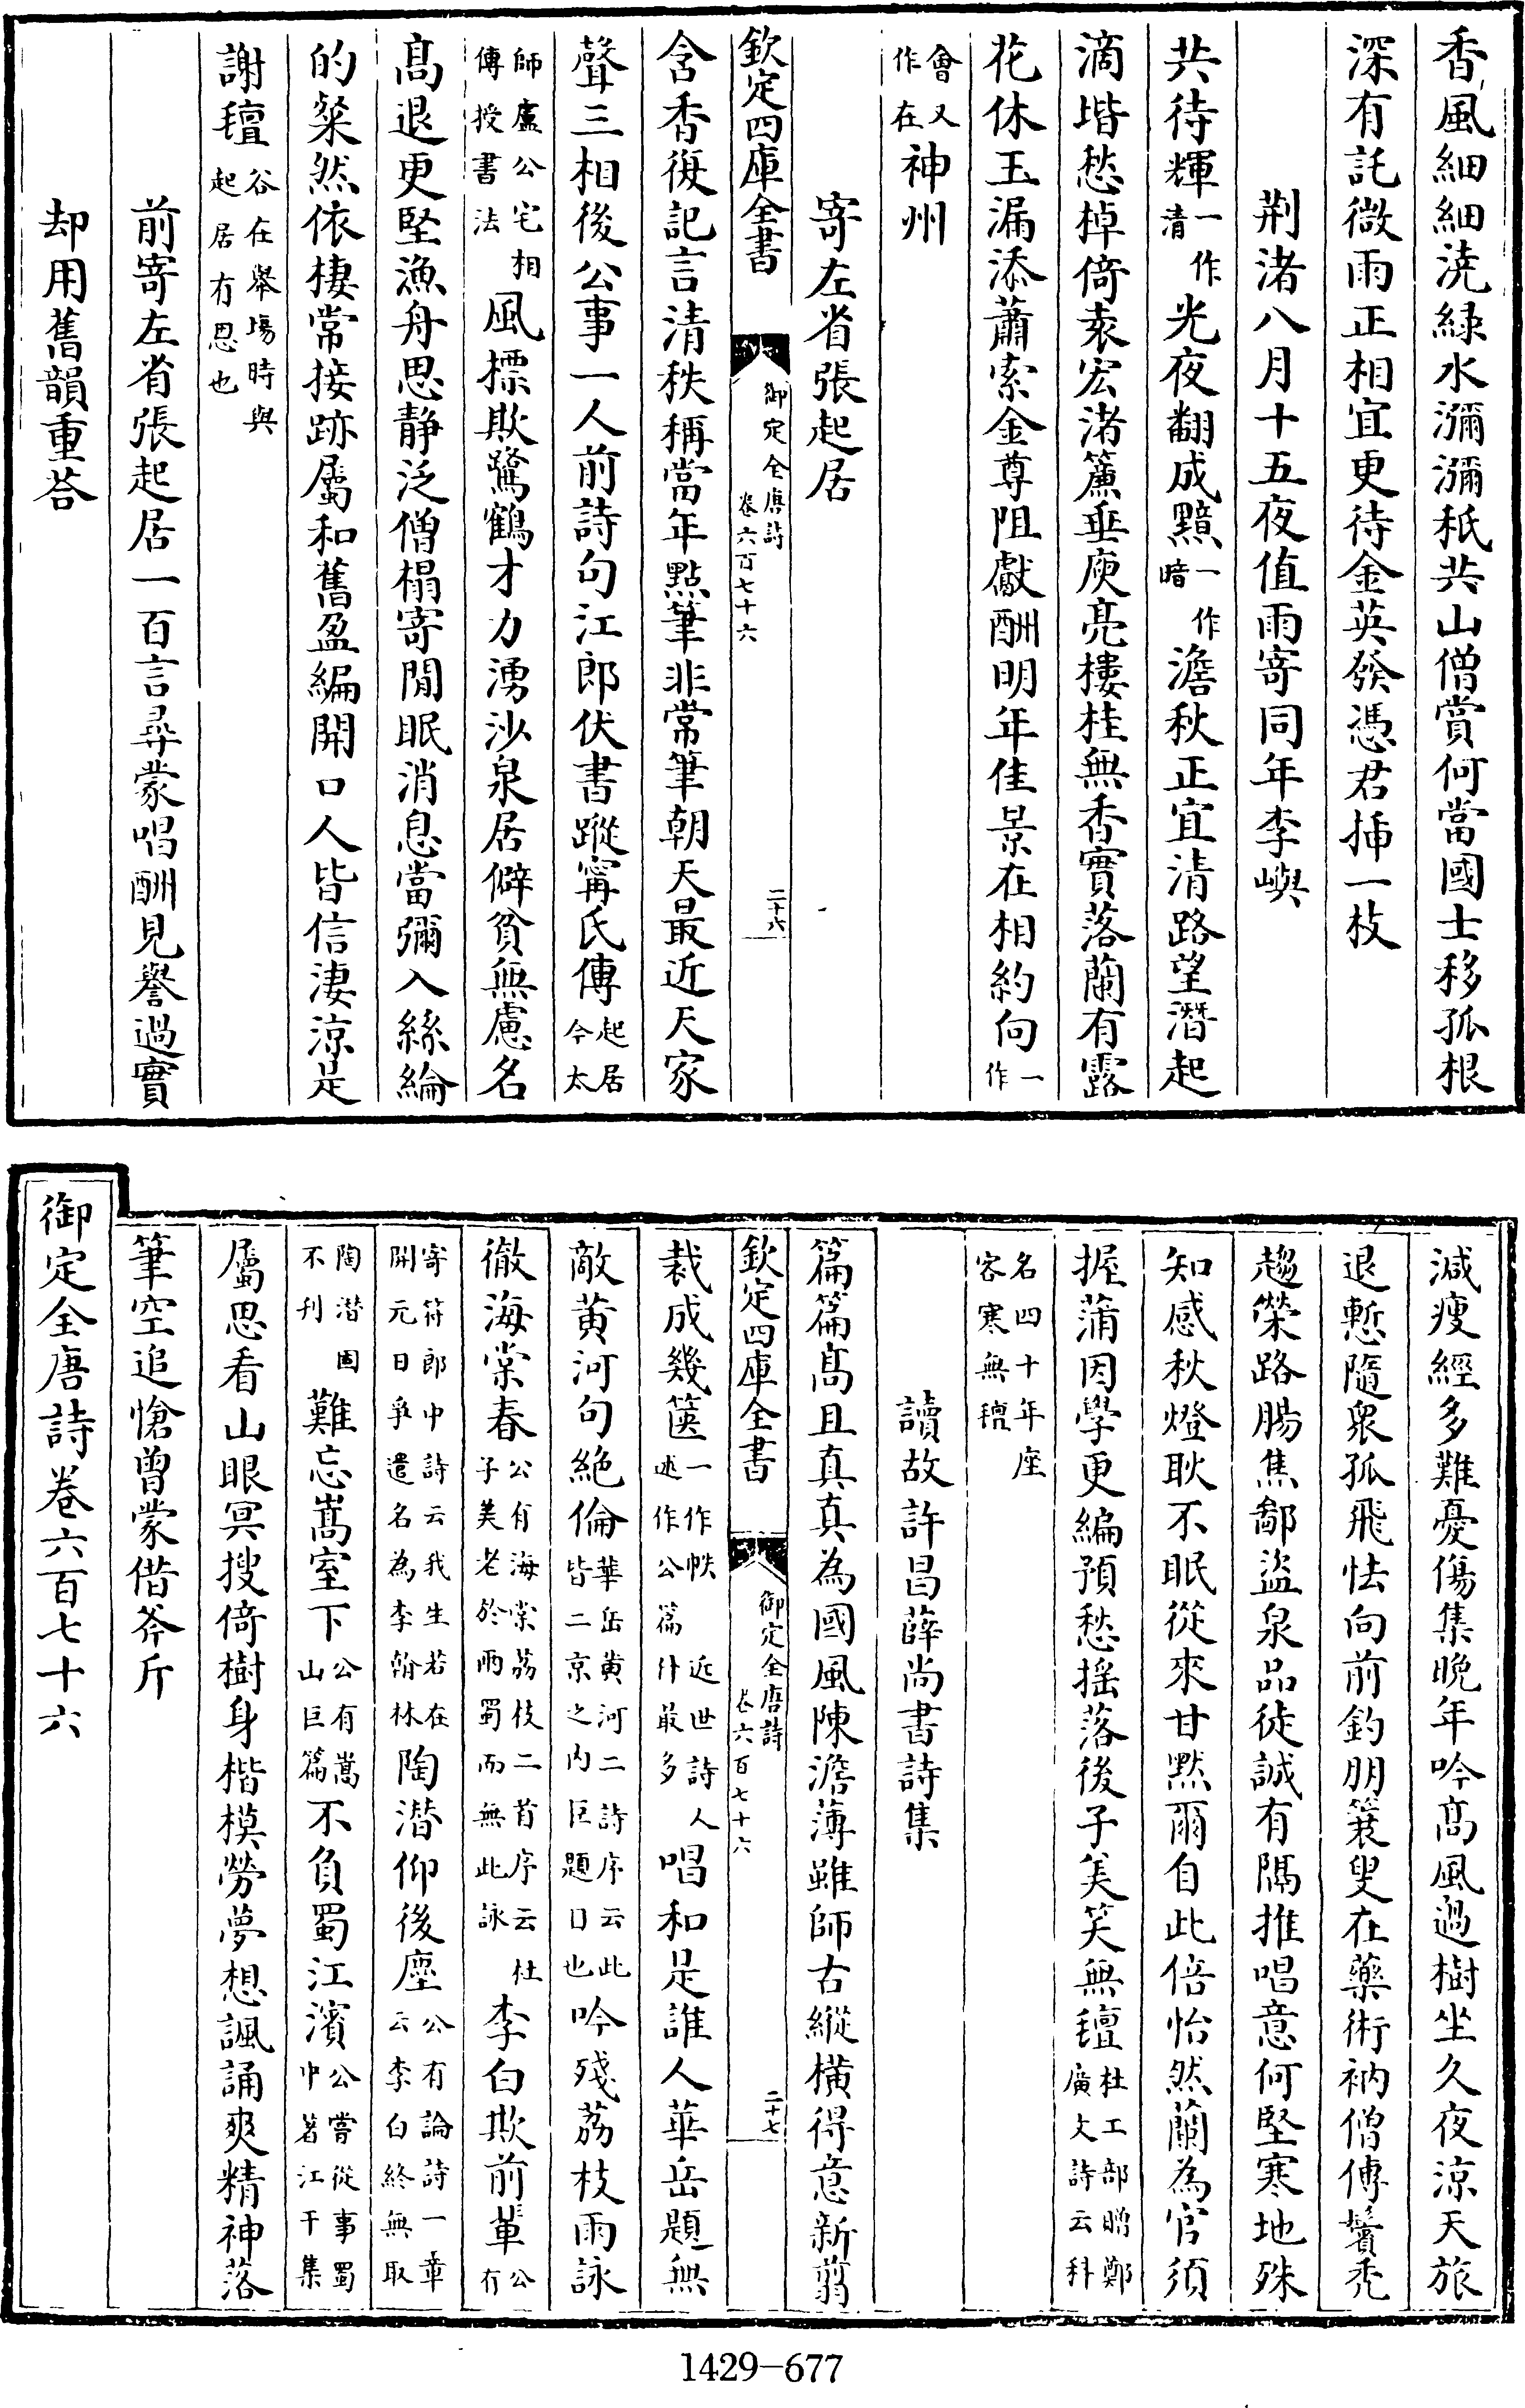 香風細細澆綠水瀰瀰秖共山僧賞何當國士移孤根
深有託微雨正相宜更待金英發憑君揷一枝
荆渚八月十五夜值雨寄同年李嶼
共待輝一作清光夜翻成黯一作暗澹秋正宜清路望潛起
滴堦愁棹倚袁宏渚簾垂庾亮樓桂無香實落蘭有露
花休玉漏添蕭索金尊阻獻酬明年佳景在相約向一作
會又作在神州
寄左省張起居
欽定四庫全書
御定全唐詩
卷六百七十六
二十六
含香復記言清秩稱當年點筆非常筆朝天最近天家
聲三相後公事一人前詩句江郎伏書蹤甯氏傳起居今太
師盧公宅相傳授書法風摽欺鷺鶴才力湧沙泉居僻貧無慮名
髙退更堅漁舟思静泛僧榻寄閒眠消息當彌入絲綸
的粲然依棲常接跡屬和舊盈編開口人皆信淒涼是
謝氊谷在舉塲時與起居有思也
前寄左省張起居一百言尋蒙唱酬見譽過實
却用舊韻重荅
減瘦經多難憂傷集晚年吟髙風過樹坐久夜涼天旅
退慙隨衆孤飛怯向前釣朋蓑叟在藥術衲僧傳鬢秃
趨榮路腸焦鄙盜泉品徒誠有隔推唱意何堅寒地殊
知感秋燈耿不眠從來甘黙爾自此倍怡然蘭為官須
握蒲因學更編預愁摇落後子美笑無氊杜工部贈鄭廣文詩云科
名四十年座客寒無氊
讀故許昌薛尚書詩集
篇篇髙且真真為國風陳澹薄雖師古縱橫得意新翦
欽定四庫全書
御定全唐詩
卷六百七十六
二十七
裁成幾篋一作帙一作述作公篇什最多近世詩人唱和是誰人華岳題無
敵黄河句絶倫華岳黄河二詩序云此皆二京之内巨題目也吟殘荔枝雨詠
徹海棠春公有海棠荔枝二首序云杜子美老於兩蜀而無此詠李白欺前輩公有
寄符郎中詩云我生若在開元日爭遣名為李翰林陶潛仰後塵公有論詩一章云李白終無取
陶潛固不刋難忘嵩室下公有嵩山巨篇不負蜀江濱公嘗從事蜀中著江干集
屬思看山眼冥搜倚樹身楷模勞夢想諷誦爽精神落
筆空追愴曾蒙借斧斤
御定全唐詩卷六百七十六
1429-677